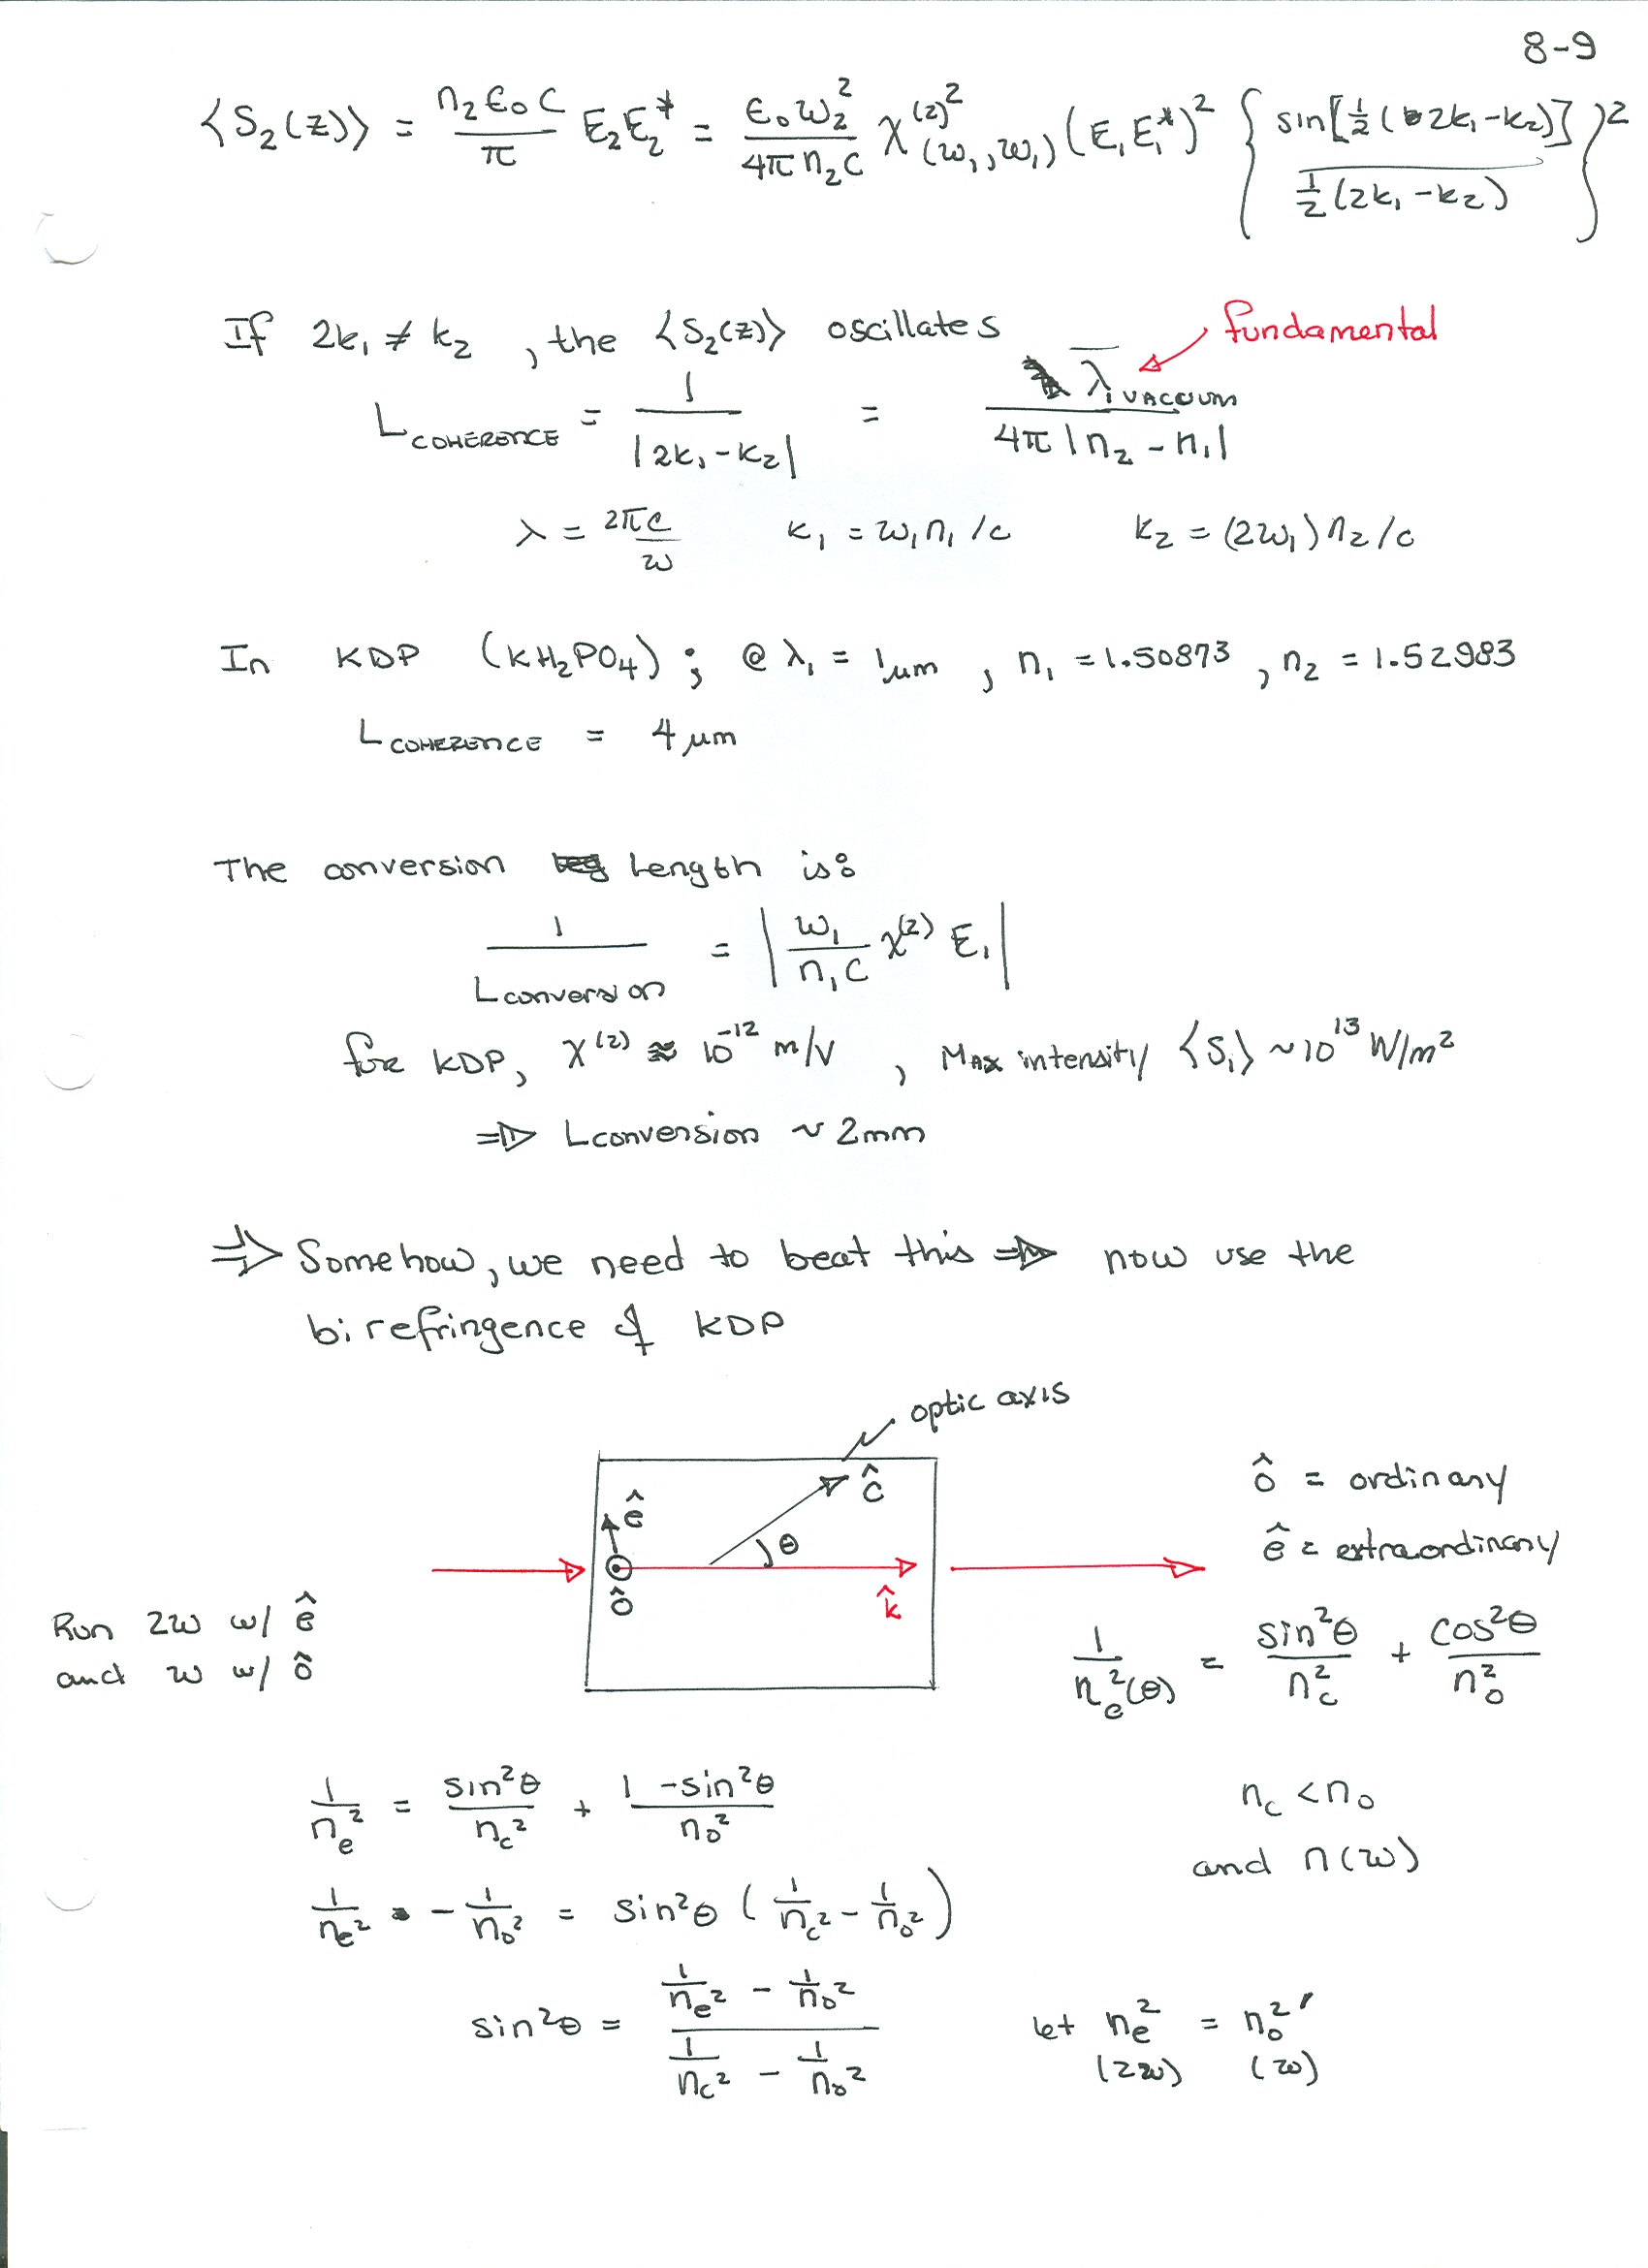 8-9
⟨S₂(z)⟩ = n₂ε₀c/π E₂E₂* = ε₀ω₂²/4πn₂c χ⁽²⁾²(ω₁,ω₁) (E₁E₁*)² { sin[½(2k₁-k₂)] / ½(2k₁-k₂) }²
If 2k₁ ≠ k₂ , the ⟨S₂(z)⟩ oscillates
fundamental
L COHERENCE = 1/|2k₁-k₂| = λ₁ VACUUM / 4π|n₂-n₁|
λ = 2πc/ω k₁ = ω₁n₁/c k₂ = (2ω₁)n₂/c
In KDP (KH₂PO₄) ; @ λ₁ = 1μm , n₁ = 1.50873 , n₂ = 1.52983
L COHERENCE = 4 μm
The conversion Length is:
1/L conversion = | ω₁/n₁c χ⁽²⁾ E₁ |
for KDP, χ⁽²⁾ ≈ 10⁻¹² m/V , Max intensity ⟨S₁⟩ ~ 10¹³ W/m²
⇒ L conversion ~ 2mm
⇒ Somehow, we need to beat this ⇒ now use the
birefringence of KDP
optic axis
ĉ
ê
θ
ô
k̂
ô = ordinary
ê = extraordinary
Run 2ω w/ ê
and ω w/ ô
1/nₑ²(θ) = sin²θ/n_c² + cos²θ/n₀²
1/nₑ² = sin²θ/n_c² + 1-sin²θ/n₀²
n_c < n₀
and n(ω)
1/nₑ² - 1/n₀² = sin²θ ( 1/n_c² - 1/n₀² )
sin²θ = (1/nₑ² - 1/n₀²) / (1/n_c² - 1/n₀²)
let nₑ² = n₀²′
(2ω) (ω)